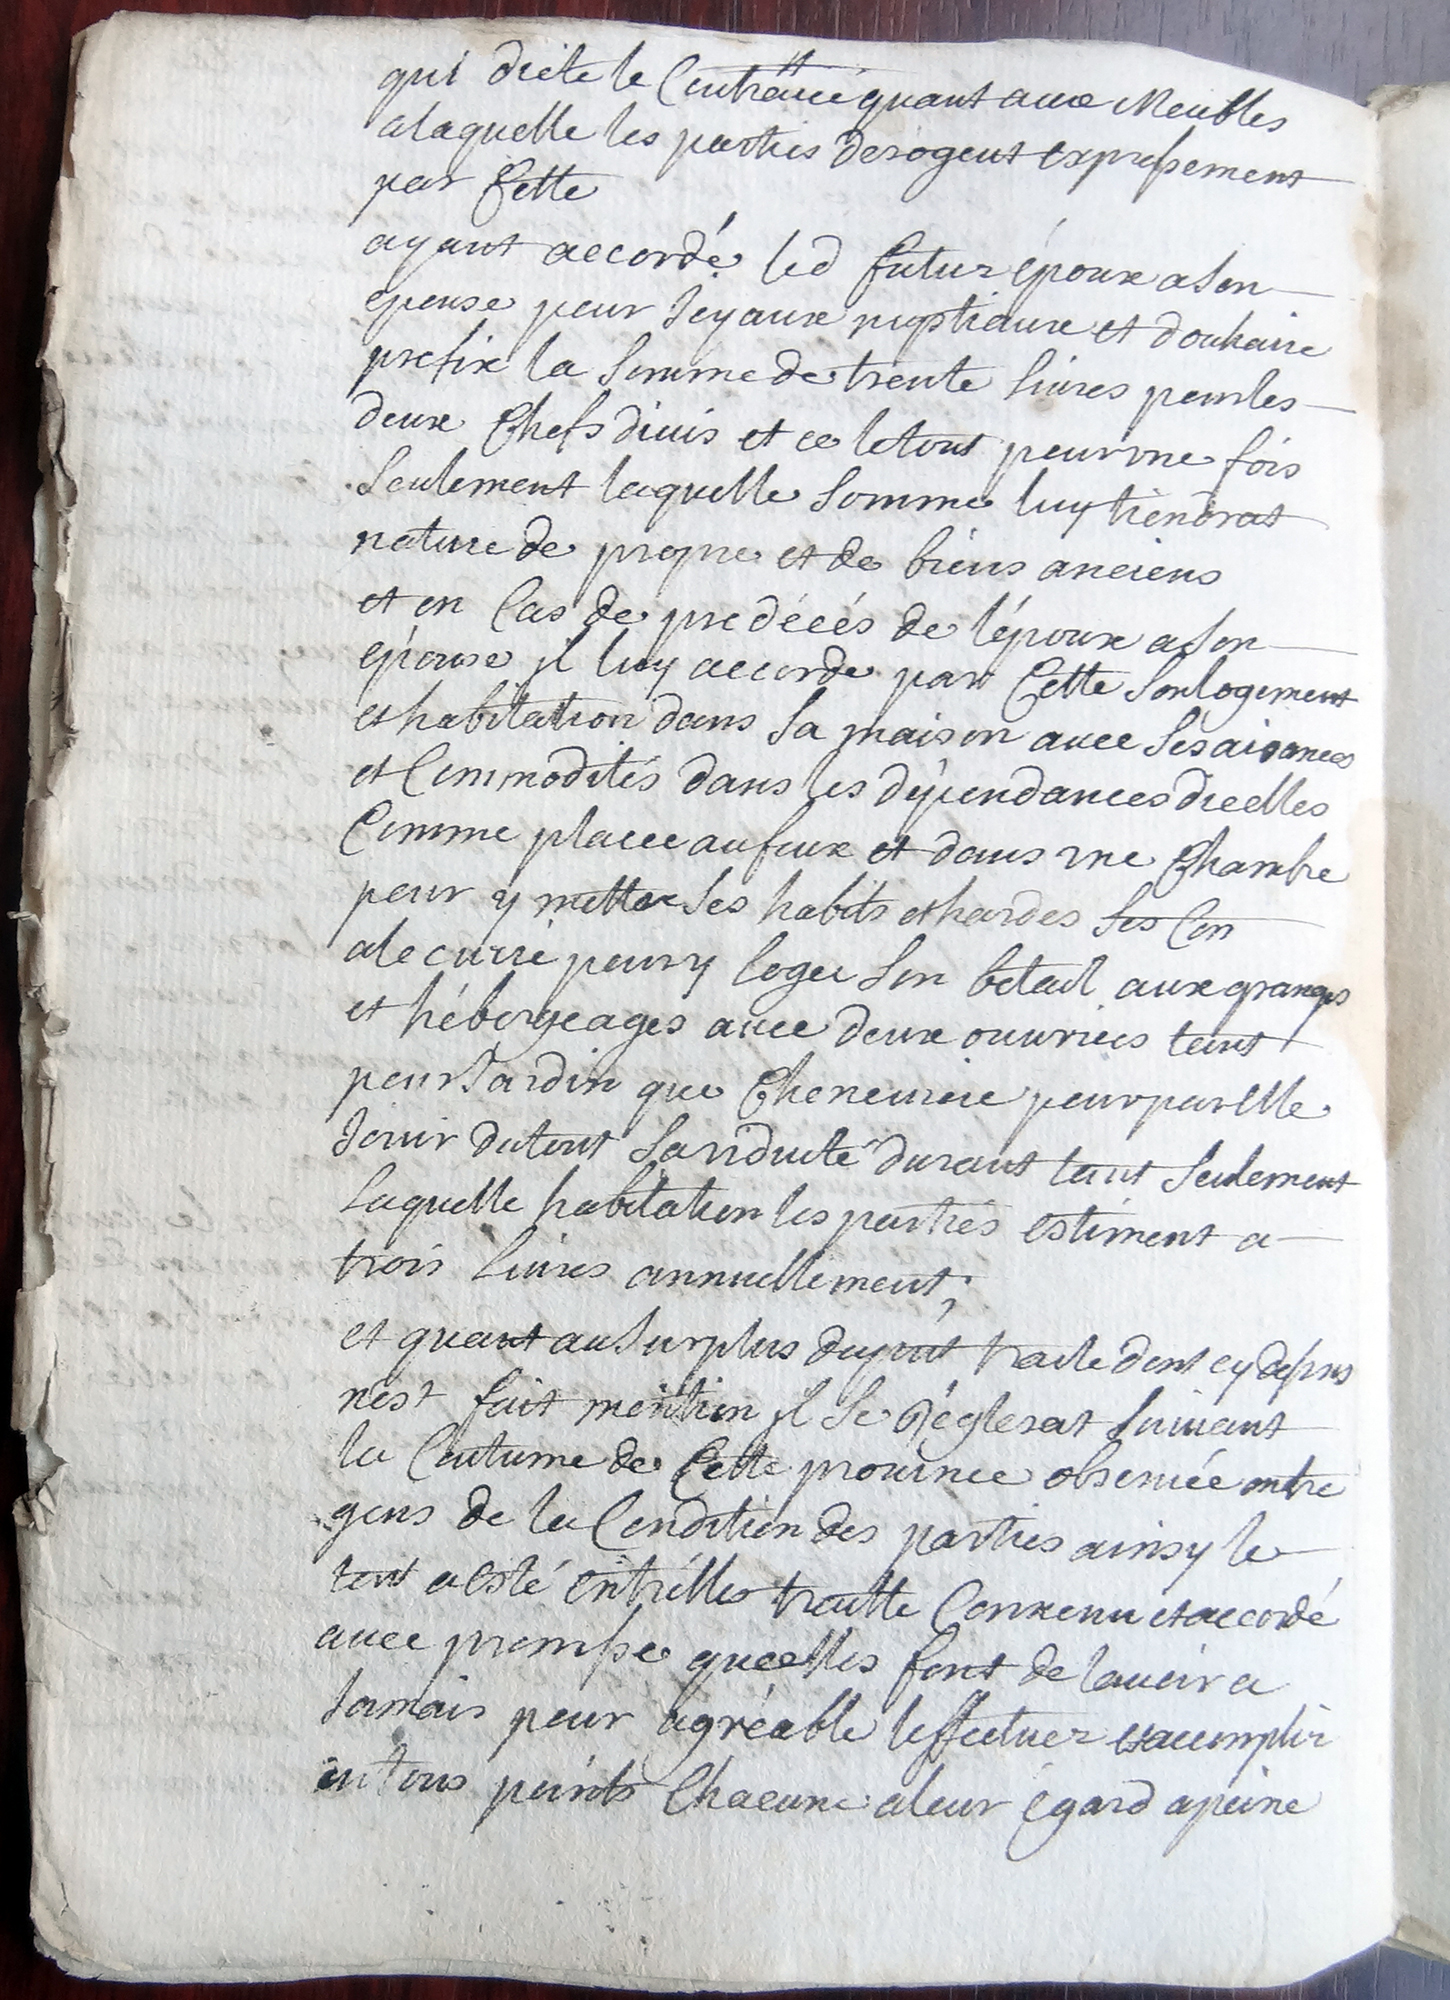 qui dicte le Contraire quant aux Meubles
alaquelle les parties derogent expressement
par Cette
ayant accordé led futur époux a son
epouse pour Joyaux nuptiaux et douhaire
prefix la somme de trente livres pour les
deux Chefs divis et ce le tout pour une fois
seulement laquelle somme luy tiendrat
nature de propre et de biens anciens
et en Cas de predécés de l'époux a son
épouse il luy accorde par Cette son logement
et habitation dans sa maison avec ses aisances
et Commodités dans les dépendances dicelles
Comme place au feux et dans une Chambre
pour y mettre ses habits et hardes
alecurie pour y loger son betail aux granges
et hébergeages avec deux ouvriers tant
pour Jardin que Cheneviere pour par Elle
Jouir du tout sa viduité durant tant seulement
laquelle habitation les parties estiment a
trois livres annuellement;
et quant au surplus du pnt traite dont cy dessus
nest fait mention il se Réglerat suivant
la Coutume de Cette province observée entre
gens de la Condition des parties ainsy le
tout a esté entrelles traitte Convenu et accordé
avec promesse quelles font de lavoir a
Jamais pour agréable leffectuer et acomplir
en tous points Chacune a leur égard a peine